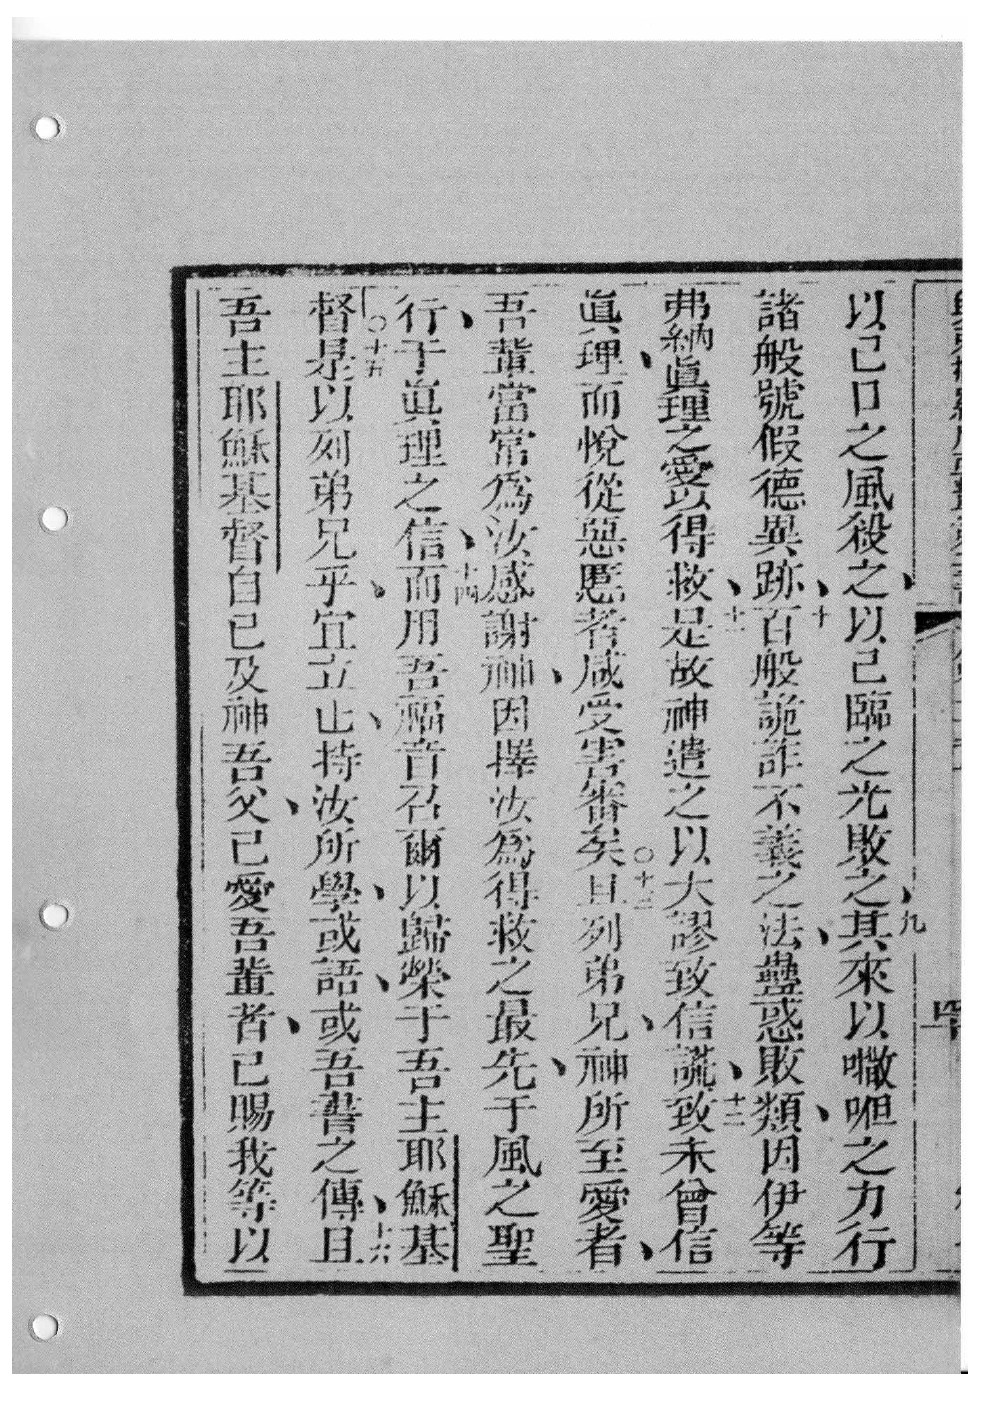 以己口之風殺之、以己臨之光敗之、九其來以㘔呾之力行
諸般號假德異跡、十百般詭詐不義之法、蠱惑敗類、因伊等
弗納眞理之愛以得救、十一是故神遣之以大謬致信謊、十二致未曾信
眞理、而悅從惡慝者咸受害審矣○十三且列弟兄、神所至愛者、
吾輩當常爲汝感謝神、因擇汝爲得救之最先、于風之聖
行、于眞理之信、十四而用吾福音召爾以歸榮于吾主耶穌基
督○十五是以列弟兄乎、宜立止、持汝所學、或語、或吾書之傳、十六且
吾主耶穌基督自己及神吾父、已愛吾輩者、已賜我等以